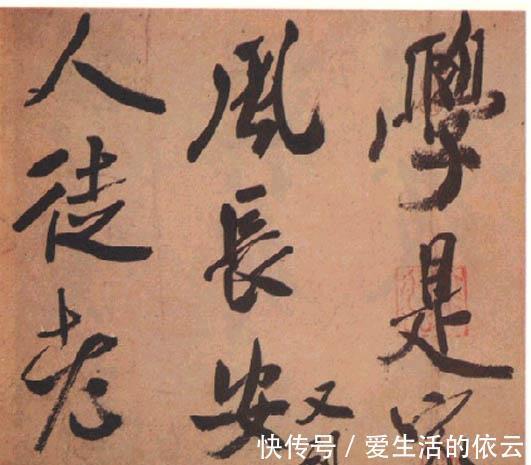 學是
風長安
又
人徒老
快传号 / 爱生活的依云